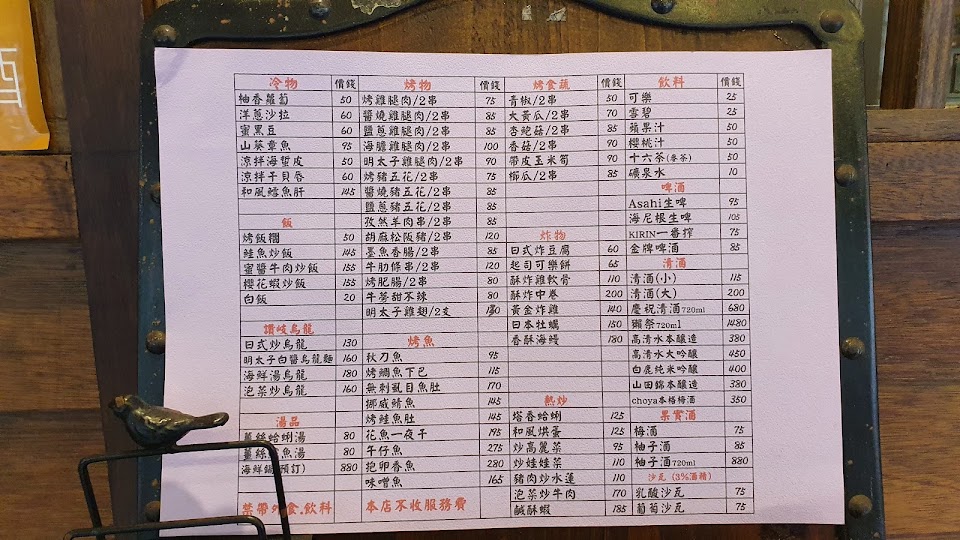 冷物 價錢
柚香蘿蔔 50
洋蔥沙拉 60
蜜黑豆 60
山葵章魚
涼拌海蜇皮 50
涼拌干貝唇 60
和風鱈魚肝 145
飯
烤飯糰 50
鮭魚炒飯 145
蜜醬牛肉炒飯 155
櫻花蝦炒飯 155
白飯 20
讚岐烏龍
日式炒烏龍 130
明太子白醬烏龍麵 160
海鮮湯烏龍 180
泡菜炒烏龍 160
湯品
薑絲蛤蜊湯 80
薑絲魚湯 80
海鮮鍋(預訂) 880
禁帶外食.飲料
烤物 價錢
烤雞腿肉/2串 75
醬燒雞腿肉/2串 85
鹽蔥雞腿肉/2串 85
海膽雞腿肉/2串 100
明太子雞腿肉/2串 90
烤豬五花/2串 75
醬燒豬五花/2串 85
鹽蔥豬五花/2串 85
孜然羊肉串/2串 85
胡麻松阪豬/2串 120
墨魚香腸/2串 85
牛肋條串/2串 120
烤肥腸/2串 80
牛蒡甜不辣 80
明太子雞翅/2支 130
烤魚
秋刀魚 95
烤鯛魚下巴 115
無刺虱目魚肚 170
挪威鯖魚 145
烤鮭魚肚 145
花魚一夜干 195
午仔魚 275
抱卵香魚 280
味噌魚 165
本店不收服務費
烤食蔬 價錢
青椒/2串 50
大黃瓜/2串 70
杏鮑菇/2串 85
香菇/2串 90
帶皮玉米筍 90
櫛瓜/2串 85
炸物
日式炸豆腐 60
起司可樂餅 65
酥炸雞軟骨 110
酥炸中卷 200
黃金炸雞 140
日本牡蠣 150
香酥海鰻 180
熱炒
塔香蛤蜊 125
和風烘蛋 125
炒高麗菜 95
炒娃娃菜 110
豬肉炒水蓮 110
泡菜炒牛肉 170
鹹酥蝦 185
飲料 價錢
可樂 25
雪碧 25
蘋果汁 50
櫻桃汁 50
十六茶(麥茶) 50
礦泉水 10
啤酒
Asahi生啤 95
海尼根生啤 105
KIRIN一番搾 75
金牌啤酒 85
清酒
清酒(小) 115
清酒(大) 200
慶祝清酒720ml 680
獺祭720ml 1480
高清水本釀造 380
高清水大吟釀 450
白鹿純米吟釀 400
山田錦本釀造 380
choya本格梅酒 350
果實酒
梅酒 75
柚子酒 85
柚子酒720ml 880
沙瓦 (3%酒精)
乳酸沙瓦 75
葡萄沙瓦 75